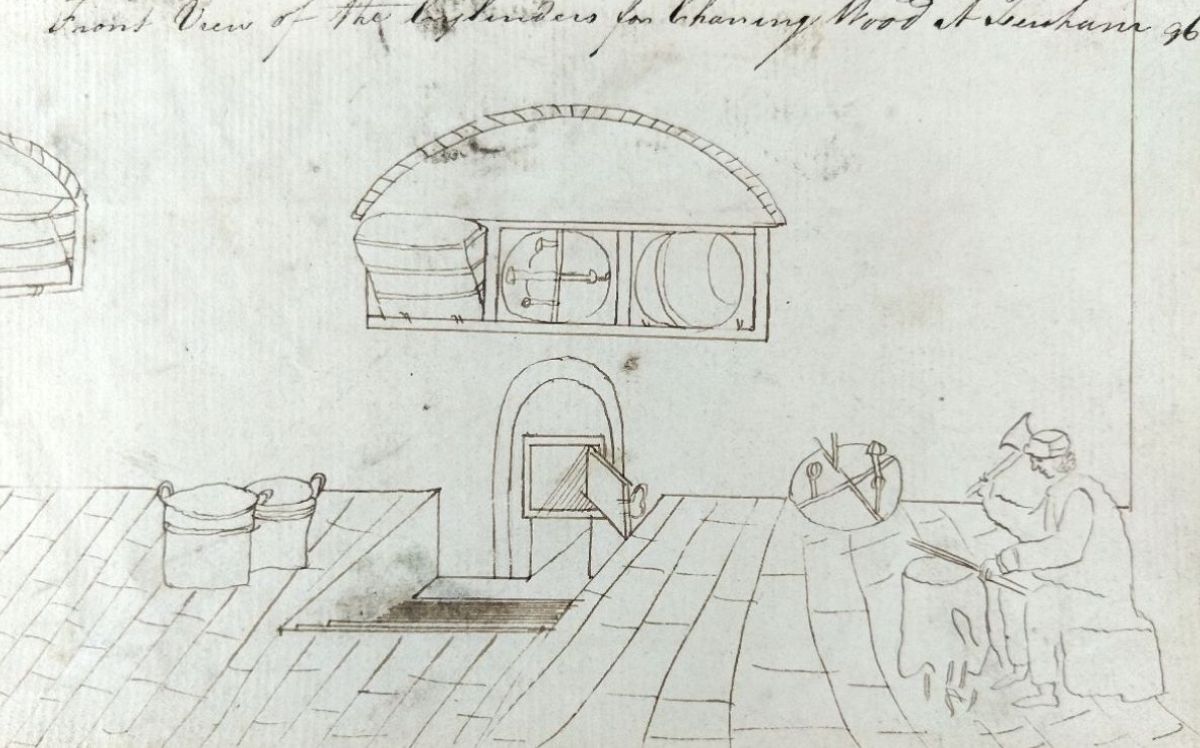 Front View of the Cylinders for Charring Wood At 96